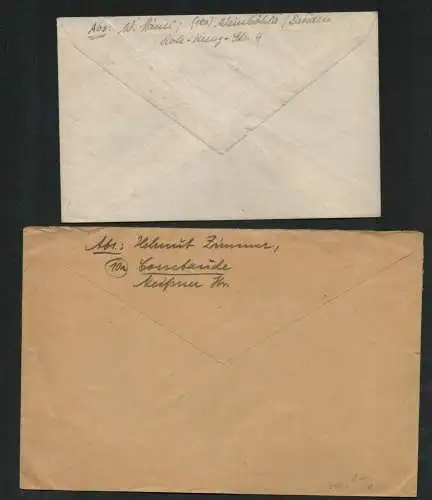 Abs: W. (10a) Weinböhla / Dresden
Rote-Kreuz-Str. 4
Abs.: Helmut Zimmer,
(10a) Cossebaude
Meißner Str.